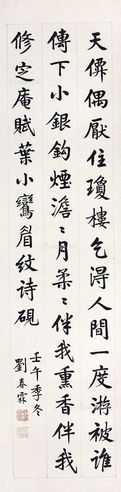 天僊偶厭住瓊樓乞得人間一度游被誰
傳下小銀鈎煙澹〻月柔〻伴我熏香伴我
修定庵賦葉小鸞眉紋诗硯
壬午季冬
劉春霖